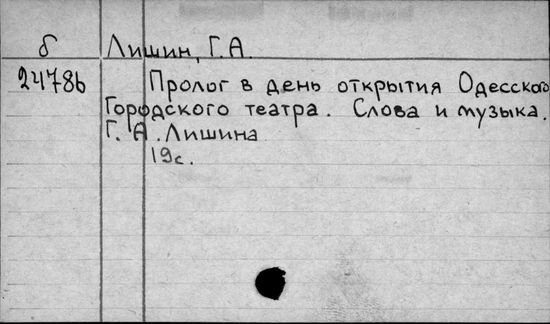 б Лишин, Г.А.
24786 Пролог в день открытия Одесского
Городского театра. Слова и музыка.
Г. А. Лишина
19с.